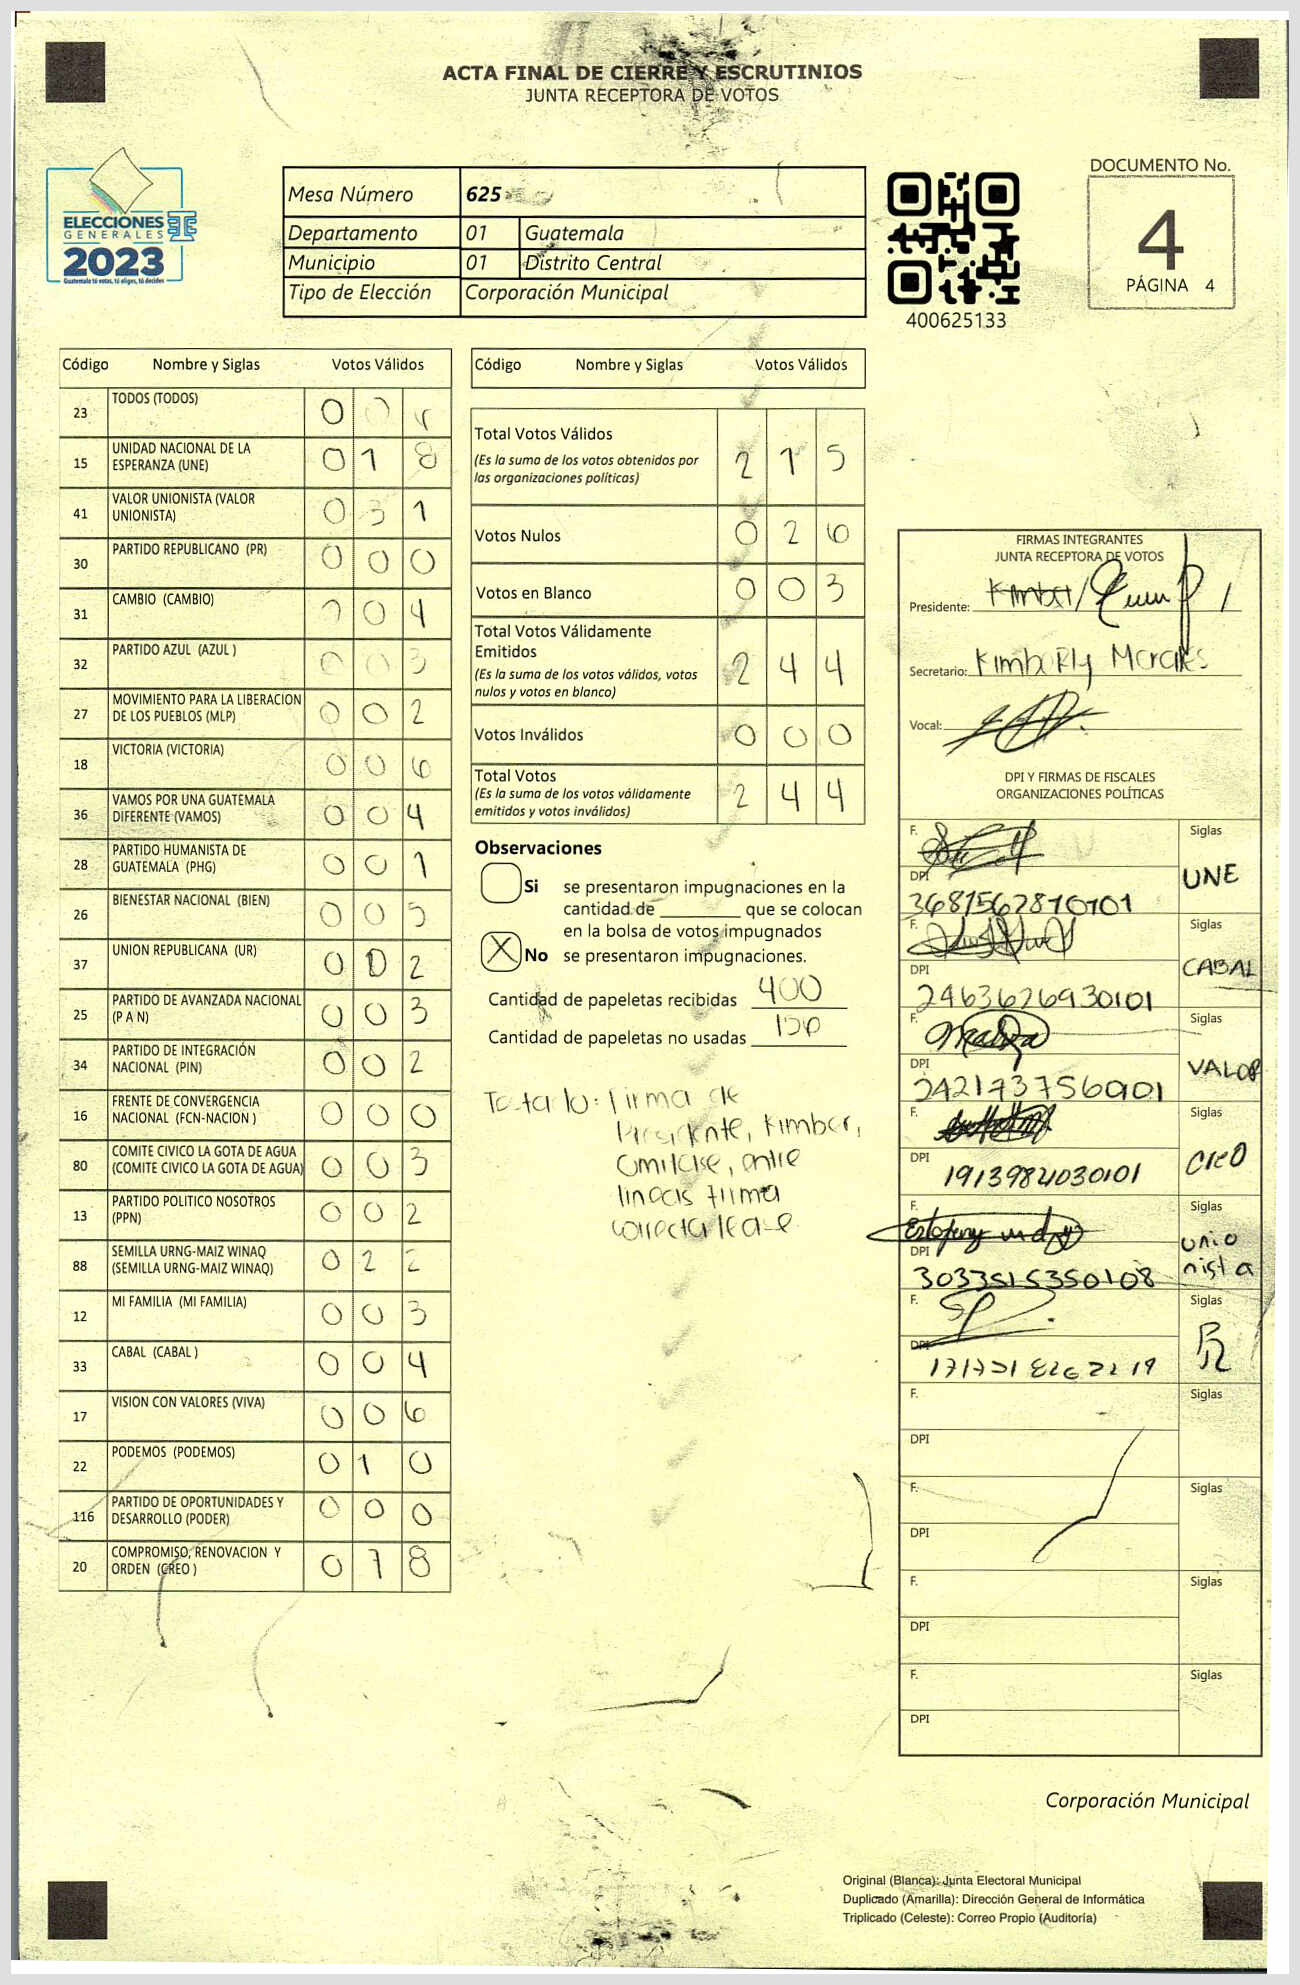 ACTA FINAL DE CIERRE Y ESCRUTINIOS
JUNTA RECEPTORA DE VOTOS
ELECCIONES
GENERALES
2023
Guatemala tú votas, tú eliges, tú decides
Mesa Número 625
Departamento 01 Guatemala
Municipio 01 Distrito Central
Tipo de Elección Corporación Municipal
400625133
DOCUMENTO No.
4
PÁGINA 4
Código Nombre y Siglas Votos Válidos
23 TODOS (TODOS) 0 0
15 UNIDAD NACIONAL DE LA ESPERANZA (UNE) 0 1 8
41 VALOR UNIONISTA (VALOR UNIONISTA) 0 3 1
30 PARTIDO REPUBLICANO (PR) 0 0 0
31 CAMBIO (CAMBIO) 0 4
32 PARTIDO AZUL (AZUL ) 0 0 3
27 MOVIMIENTO PARA LA LIBERACION DE LOS PUEBLOS (MLP) 0 0 2
18 VICTORIA (VICTORIA) 0 0 6
36 VAMOS POR UNA GUATEMALA DIFERENTE (VAMOS) 0 0 4
28 PARTIDO HUMANISTA DE GUATEMALA (PHG) 0 0 1
26 BIENESTAR NACIONAL (BIEN) 0 0 5
37 UNION REPUBLICANA (UR) 0 0 2
25 PARTIDO DE AVANZADA NACIONAL (P A N) 0 0 3
34 PARTIDO DE INTEGRACIÓN NACIONAL (PIN) 0 0 2
16 FRENTE DE CONVERGENCIA NACIONAL (FCN-NACION ) 0 0 0
80 COMITE CIVICO LA GOTA DE AGUA (COMITE CIVICO LA GOTA DE AGUA) 0 0 3
13 PARTIDO POLITICO NOSOTROS (PPN) 0 0 2
88 SEMILLA URNG-MAIZ WINAQ (SEMILLA URNG-MAIZ WINAQ) 0 2 2
12 MI FAMILIA (MI FAMILIA) 0 0 3
33 CABAL (CABAL ) 0 0 4
17 VISION CON VALORES (VIVA) 0 0 6
22 PODEMOS (PODEMOS) 0 1 0
116 PARTIDO DE OPORTUNIDADES Y DESARROLLO (PODER) 0 0 0
20 COMPROMISO, RENOVACION Y ORDEN (CREO ) 0 7 8
Código Nombre y Siglas Votos Válidos
Total Votos Válidos 2 1 5
(Es la suma de los votos obtenidos por
las organizaciones políticas)
Votos Nulos 0 2 6
Votos en Blanco 0 0 3
Total Votos Válidamente
Emitidos 2 4 4
(Es la suma de los votos válidos, votos
nulos y votos en blanco)
Votos Inválidos 0 0 0
Total Votos 2 4 4
(Es la suma de los votos válidamente
emitidos y votos inválidos)
Observaciones
Si se presentaron impugnaciones en la
cantidad de ________ que se colocan
en la bolsa de votos impugnados
X No se presentaron impugnaciones.
Cantidad de papeletas recibidas 400
Cantidad de papeletas no usadas
Firma de
Presidente, Kimber,
omitase, entre
lineas firma
correcta lease.
FIRMAS INTEGRANTES
JUNTA RECEPTORA DE VOTOS
Presidente:
Secretario: Kimberly Morales
Vocal:
DPI Y FIRMAS DE FISCALES
ORGANIZACIONES POLÍTICAS
F. Siglas
DPI 3681562870101 UNE
F. Siglas
DPI 2463626930101 CABAL
F. Siglas
DPI 2421737560901 VALOR
F. Siglas
DPI 1913984030101 CREO
F. Siglas
DPI 3033515350108 unionista
F. Siglas
DPI
F. Siglas
DPI
F. Siglas
DPI
F. Siglas
DPI
F. Siglas
DPI
Corporación Municipal
Original (Blanca): Junta Electoral Municipal
Duplicado (Amarilla): Dirección General de Informática
Triplicado (Celeste): Correo Propio (Auditoría)